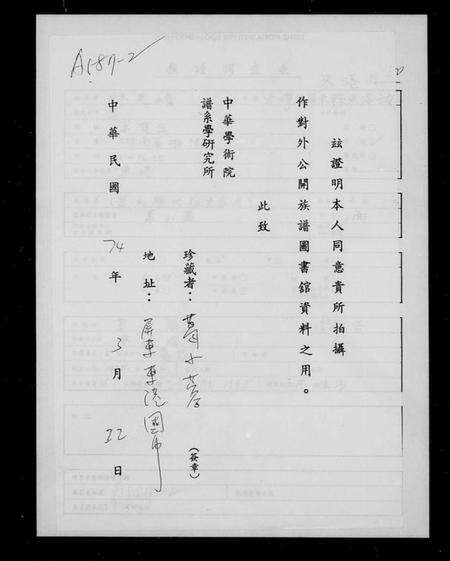 A187-2
茲證明本人同意貴所拍攝
作對外公開族譜圖書館資料之用。
此致
中華學術院
譜系學研究所
珍藏者：
(簽章)
地址：屏東東港國中
中華民國74年3月22日